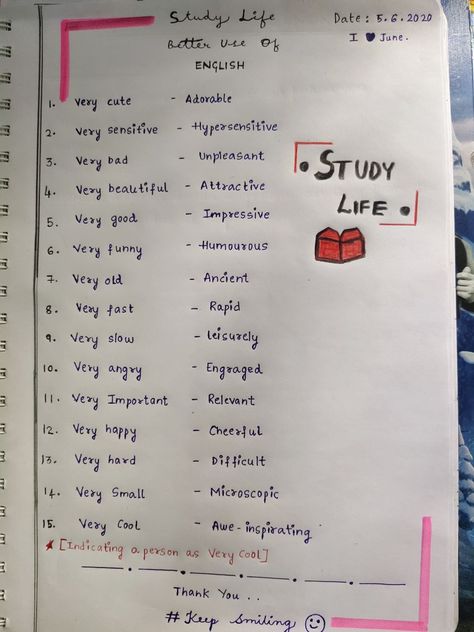 Study Life
Date : 5.6.2020
Better Use Of
I ♥ June.
ENGLISH
1. Very cute - Adorable
2. Very sensitive - Hypersensitive
3. Very bad - Unpleasant
4. Very beautiful - Attractive
5. Very good - Impressive
6. Very funny - Humourous
7. Very old - Ancient
8. Very fast - Rapid
9. Very slow - Leisurely
10. Very angry - Engraged
11. Very Important - Relevant
12. Very happy - Cheerful
13. Very hard - Difficult
14. Very Small - Microscopic
15. Very Cool - Awe-inspiring
★ [Indicating a person as Very Cool]
Thank You ..
# Keep Smiling ☺
• STUDY
LIFE •